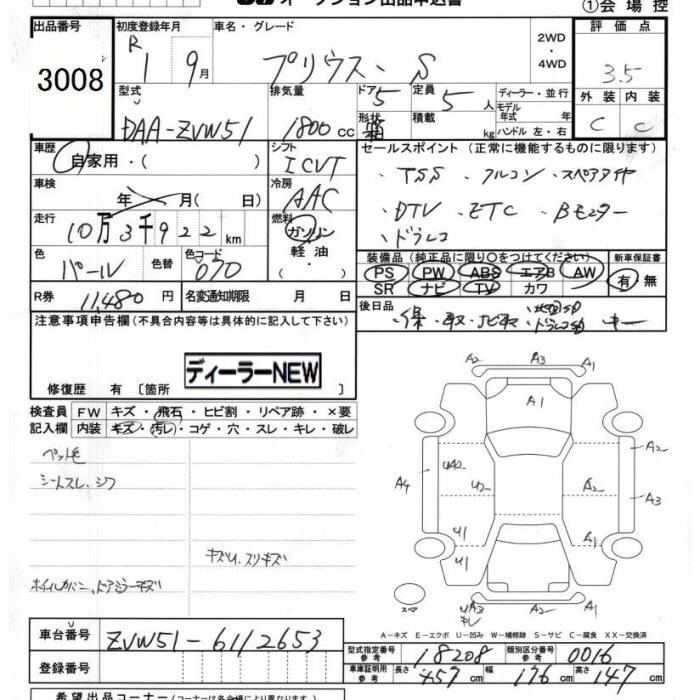 オークション出品申込書
①会場控
出品番号
3008
初度登録年月
R 1 9月
車名・グレード
プリウス・S
2WD
・
4WD
評価点
3.5
型式
DAA-ZVW51
排気量
1800cc
ドア 5
定員 5人
形状 箱
積載 kg
ディーラー・並行
モデル年式 年
ハンドル 左・右
外装 内装
C C
車歴
自家用・( )
シフト
ICVT
セールスポイント (正常に機能するものに限ります)
・TSS ・フルコン ・スペアタイヤ
・DTV ・ETC ・Bモニター
・ドラレコ
車検
年 月( 日)
冷房
AAC
走行
10万3千922km
燃料
ガソリン
軽油
色
パール
色替
色コード
070
装備品(純正品に限り○をつけてください)
PS PW ABS エアB AW
SR ナビ TV カワ
新車保証書
有・無
R券
11,480円
名変通知期限 月 日
後日品
・保・取・ナビ取
キー
注意事項申告欄(不具合内容等は具体的に記入して下さい)
ディーラーNEW
修復歴 有 [箇所 ]
検査員記入欄
FW キズ・飛石・ヒビ割・リペア跡・×要
内装 キズ・汚レ・コゲ・穴・スレ・キレ・破レ
ペット毛
シートスレ、シワ
キズU、スリキズ
ホイルカバー、ドアミラーキズ
A2 A3 A1
A1
A2
UA2 U2 A2
A4 A3
U1 U1 A1
スペア
UA3 A2 A1
キレ
A-キズ E-エクボ U-凹み W-補修跡 S-サビ C-腐食 XX-交換済
車台番号
ZVW51-6112653
登録番号
型式指定番号 参考 18208
類別区分番号 参考 0016
車庫証明用 参考 長さ 457cm 幅 176cm 高さ 147cm
希望出品コーナー